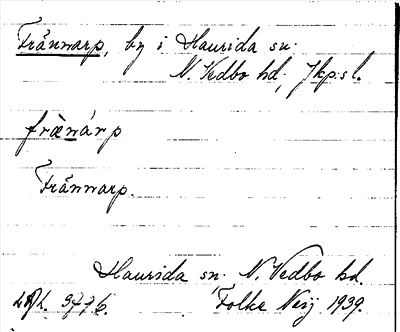 Frännarp, by i Haurida sn.
N. Vedbo hd., Jkp.s l.
frænárp
Frännarp.
Haurida sn. N. Vedbo hd.
Folke Neij 1939.